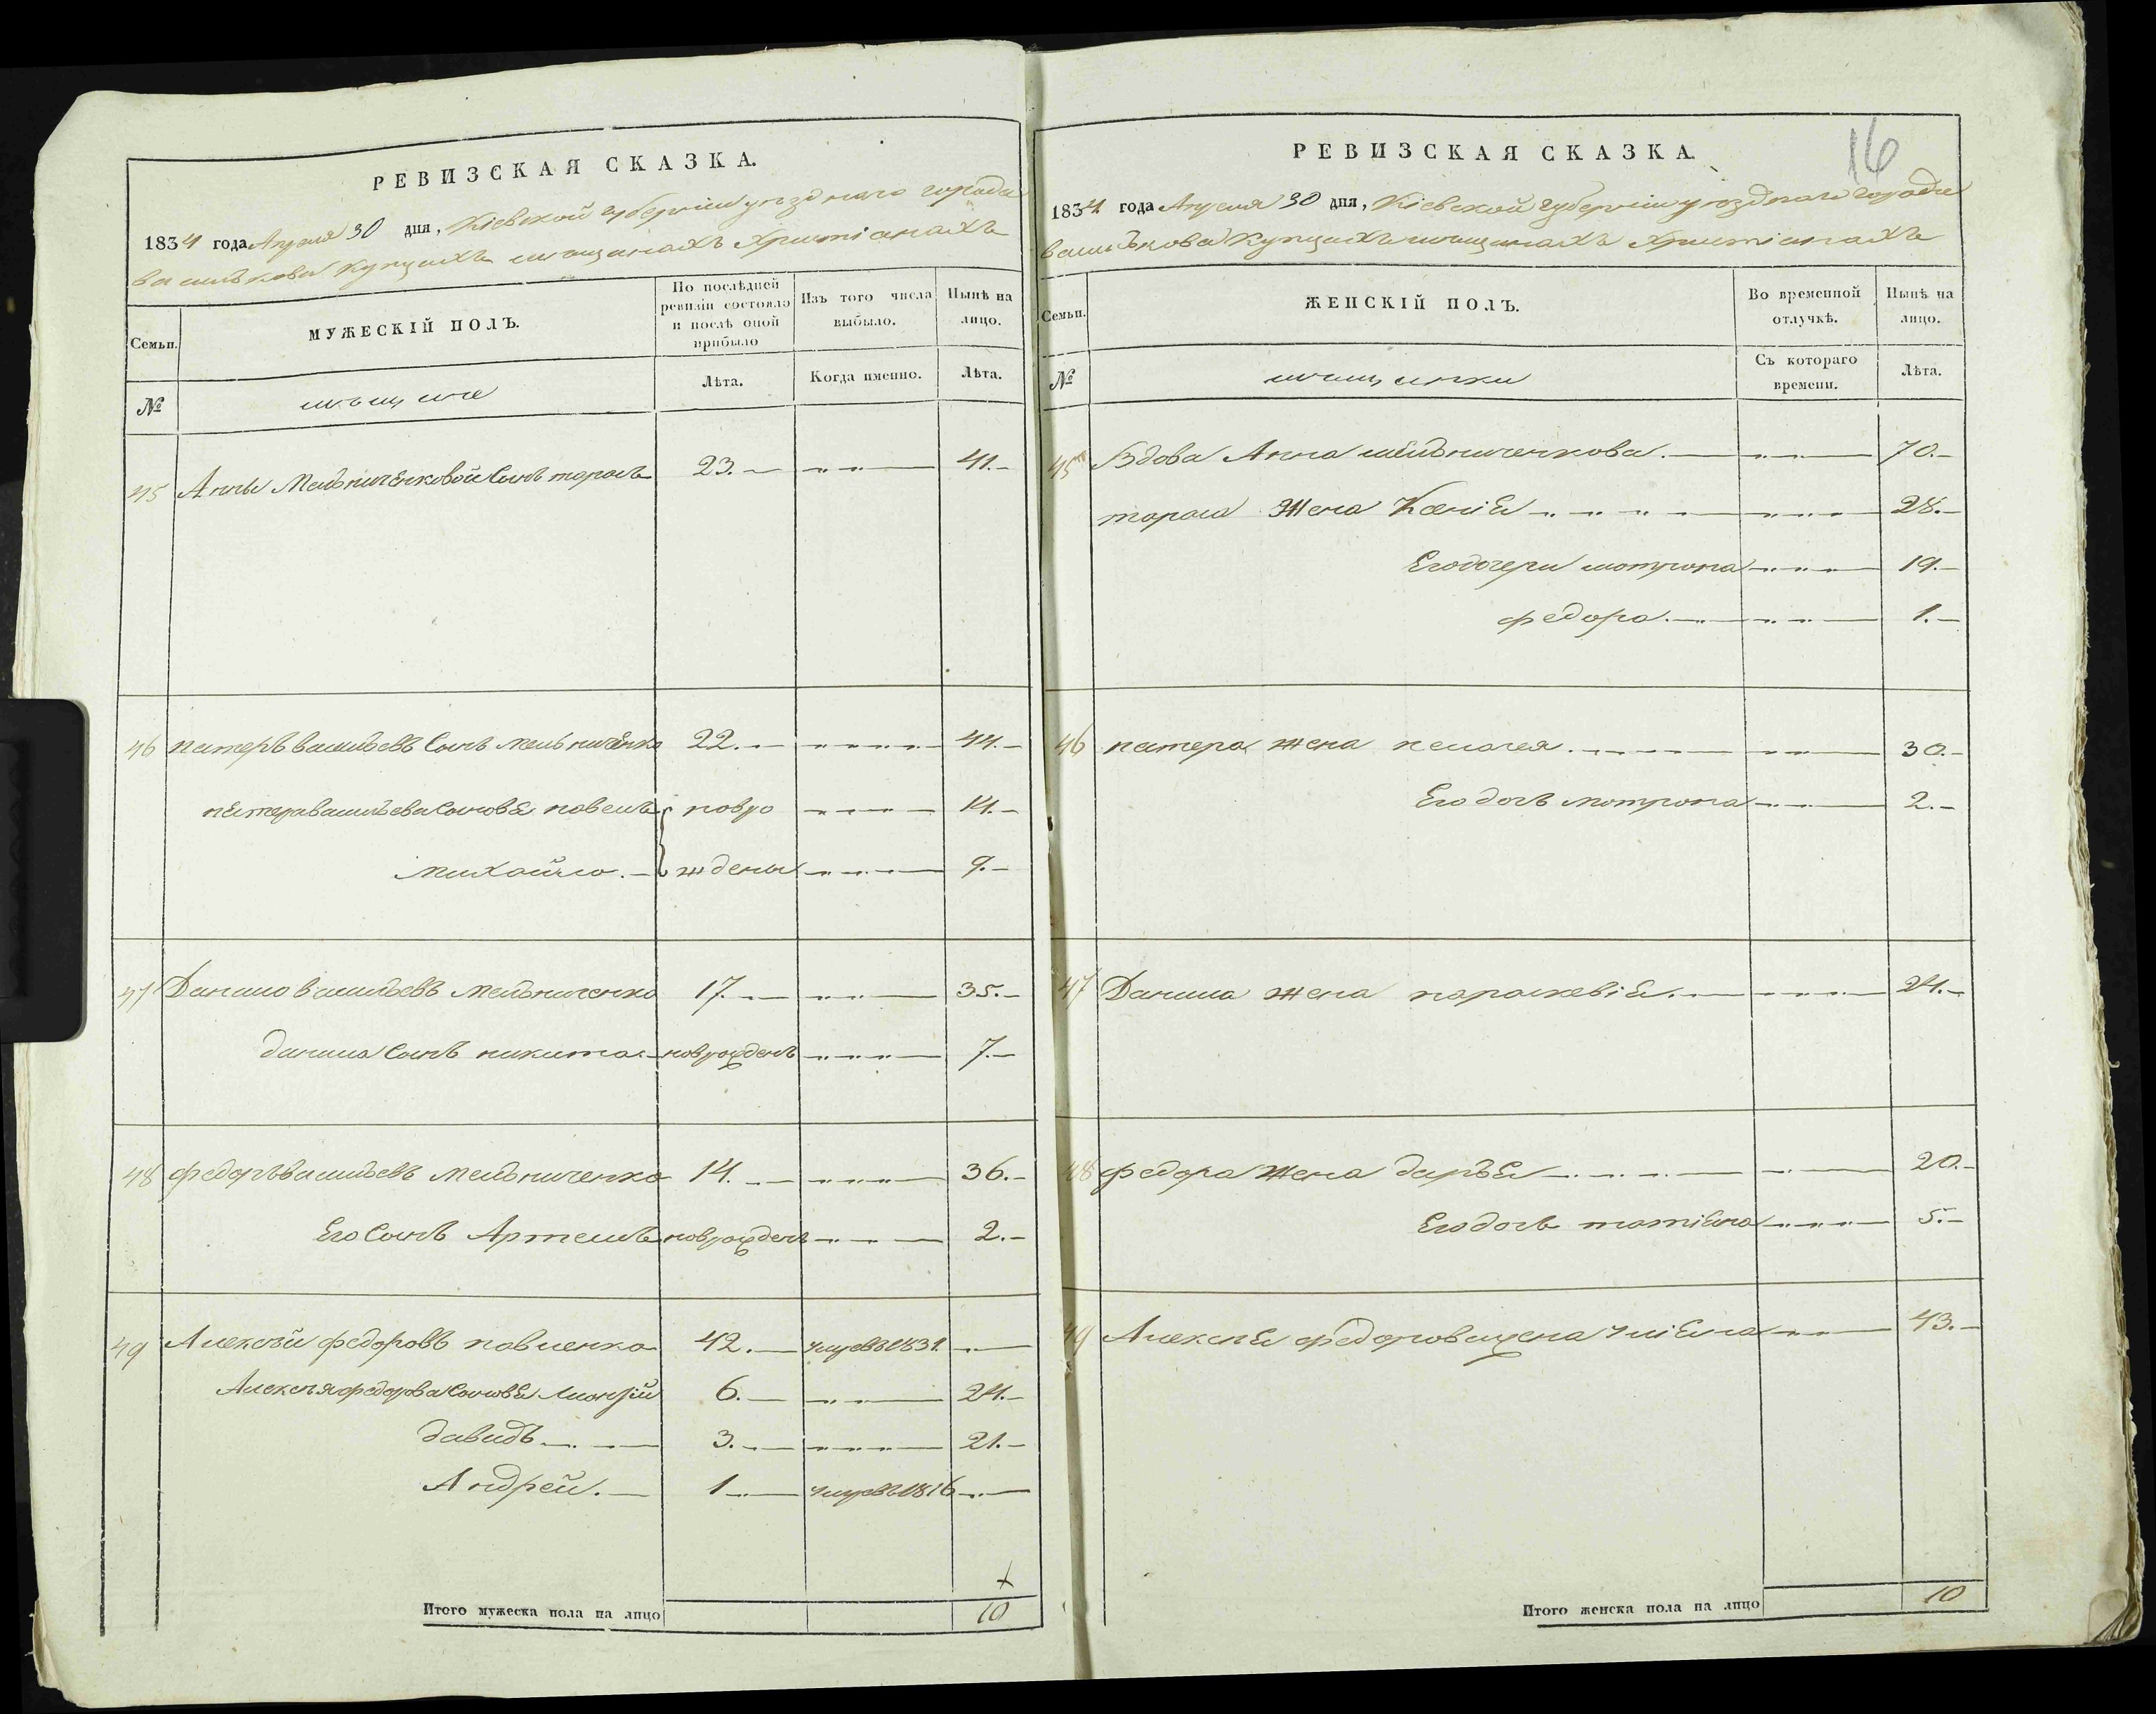 РЕВИЗСКАЯ СКАЗКА.
1834 года Апреля 30 дня, Кіевской губерніи уѣзднаго города
василькова купцахъ мѣщанахъ христіанахъ
Семьи.
МУЖЕСКІЙ ПОЛЪ.
По послѣдней ревизіи состояло и послѣ оной прибыло
Изъ того числа выбыло.
Нынѣ на лицо.
№
мѣщане
Лѣта.
Когда именно.
Лѣта.
45 Анны Мельниченковой Сынъ тарасъ 23. 41.
46 васильевъ Сынъ мельниченко 22. 44.
васильева Сыновья павелъ повро 14.
михайло. ждены 9.
47 Данило васильевъ мельниченко 17. 35.
данила Сынъ никита новрожденъ 7.
48 федоръ васильевъ мельниченко 14. 36.
Его Сынъ Артемъ новрожденъ 2.
49 Алексѣй федоровъ павленко 42. умре въ 1831.
Алексѣя федорова Сыновья 6. 24.
давидъ 3. 21.
Андрей. 1 умре въ 1816
Итого мужеска пола на лицо 10
РЕВИЗСКАЯ СКАЗКА.
16
1834 года Апреля 30 дня, Кіевской губерніи уѣзднаго города
василькова купцахъ мѣщанахъ христіанахъ
Семьи.
ЖЕНСКІЙ ПОЛЪ.
Во временной отлучкѣ.
Нынѣ на лицо.
№
мѣщанки
Съ котораго времени.
Лѣта.
45 Вдова Анна мельниченкова. 70.
тараса Жена Ксенія 28.
Его дочери мотрона 19.
федора. 1.
46 жена пелагея. 30.
Его дочь мотрона 2.
47 Данила жена параскевія. 24.
48 федора Жена дарья 20.
Его дочь татіяна 5.
49 Алексѣя федорова жена уліяна 43.
Итого женска пола на лицо 10